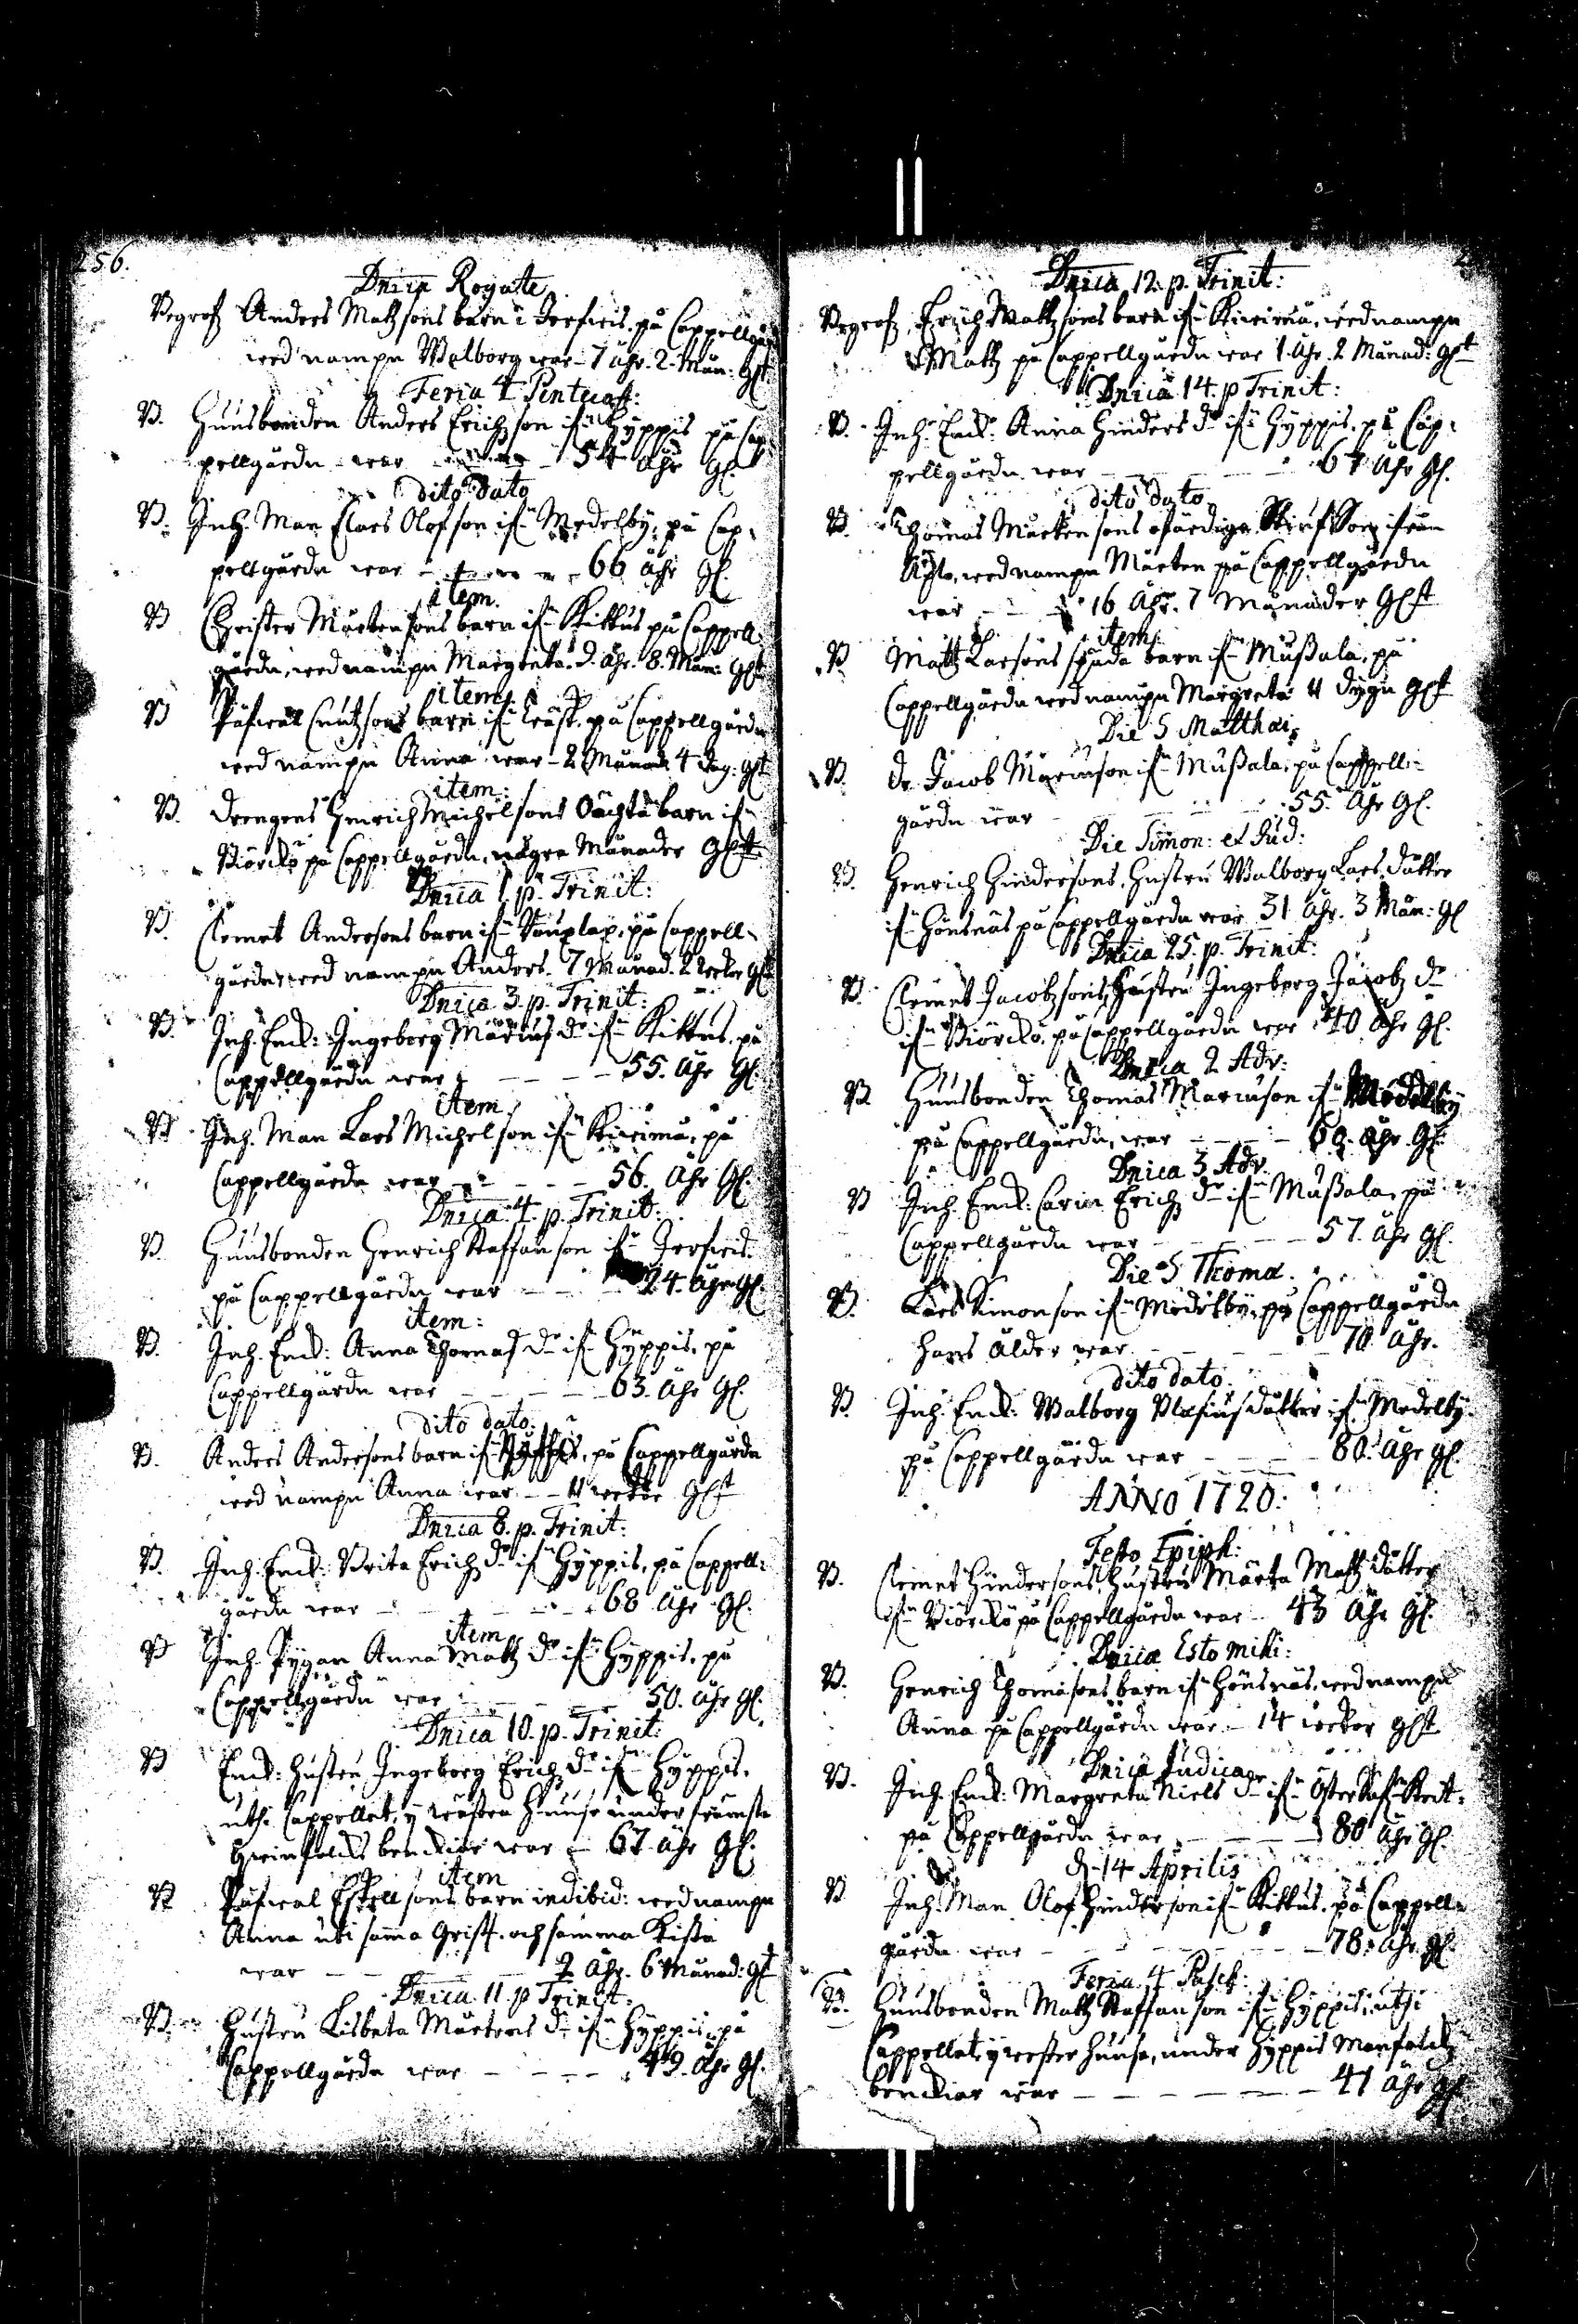 256.
Dnica Rogate
Begrofz Anders Mattzsons barn i Jerfwis, på Cappellgår
wed nampn Walborg war - 7 åhr. 2. Mån: glt
Feria 4 Pentecost:
B. Huusbonden Anders Erichzson ifrn Hyppis på Cap
pellgårdn war 54 åhr gl.
dito dato
B. Inh. Man Claes Olofson ifrn Medelby, på Cap-
pellgårdn war - - - 66 åhr gl.
item.
B Christer Mårtensons barn ifrn Kittus på Cappell-
gårdn, wed nampn Margreta. 2. åhr. 8. Mån: glt
item
B Påfwal Cnutzsons barn ifrn på Cappellgårdn
wed nampn Anna war - 2 Månad 4 dag: glt
item:
B. Drengens Henrich Michelsons oächta barn ifrn
Biörckö på Cappellgårdn, några Månader glt
Dnica 1. p. Trinit:
B. Clemet Andersons barn ifrn på Cappell-
gårdn, wed nampn Anders. 7 Månad. 2 weckor glt
Dnica 3. p. Trinit:
B. Inh. Enck: Ingeborg Mariusdr ifrn Kittus, på
Cappellgårdn war - - - - 55. åhr gl.
item
B Inh. Man Lars Michelson ifrn Kirimä, på
Cappellgårdn war - - - - 56. åhr gl.
Dnica 4. p. Trinit:
B. Huusbonden Henrich Staffanson ifrn Jerfwis
på Cappellgårdn war - - - 24. åhr gl.
item:
B. Inh. Enck: Anna Thomasdr ifrn Hyppis, på
Cappellgårdn war - - - - 63. åhr gl.
dito dato:
B. Anders Andersons barn ifrn på Cappellgårdn
wed nampn Anna war - - 11 weckor glt
Dnica 8. p. Trinit:
B. Inh. Enck: Brita Erichzdr ifrn Hyppis, på Cappell-
gårdn war - - - - 68 åhr gl.
item
B Inh. Pygan Anna Mattzdr ifrn Hyppis, på
Cappellgårdn war - - - - 50. åhr gl.
Dnica 10. p. Trinit:
B Enck: hustru Ingeborg Erichzdr ifrn Hyppis.
uthi Cappellet, y wästra Huuse under främste
qwinfolcks benckiar war - 67 åhr gl.
item
B Påfwal Eskellsons barn indibid: wed nampn
Anna uti samma Grift. och samma Kista
war - - - 2 åhr. 6 Månad: glt
Dnica 11. p Trinit:
B. Hustru Lisbeta Mårtensdr ifrn Hyppis på
Cappellgårdn war - - - - 49. åhr gl.
Dnica 12. p. Trinit:
Begrofz Erich Mattzsons barn ifrn Kirimä, wed nampn
Mattz på Cappellgårdn war 1. åhr. 2 Månad: glt
Dnica 14. p Trinit:
B. Inh. Enck: Anna Hindersdr ifrn Hyppis. på Cap-
pellgårdn war - - - 67 åhr gl.
dito dato
B. Thomas Mårtensons ofärdige Son ifrån
wed nampn Mårten på Cappellgårdn
war - - - 16 åhr. 7 Månader glt
item
B Mattz Larsons späda barn ifrn Mussala, på
Cappellgårdn wed nampn Margreta 11 dygn glt
Die S Matthæi
B. dr. Jacob Mariuson ifrn Mussala, på Cappell-
gårdn war - - - 55. åhr gl.
Die Simon: et Jud:
B. Henrich Hindersons, Hustru Walborg Larsdåtter
ifrn Hönsnäs på Cappellgårdn war 31 åhr. 3 Mån: gl
Dnica 25. p. Trinit:
B. Clemet Jacobzsons, Hustru Ingeborg Jacobzdr
ifrn Biörckö, på Cappellgårdn war 40 åhr gl.
Dnica 2 Adv:
B Huusbonden Thomas Mariuson ifrn Medelby
på Cappellgårdn, war - - - - 60. åhr gl.
Dnica 3 Adv.
B Inh. Enck: Carin Erichzdr ifrn Mussala, på
Cappellgårdn war - - - - 57. åhr gl.
Die S Thomæ.
B. Lars Simonson ifrn Medelby, på Cappellgårdn
Hans ålder war - - - - 70 åhr.
dito dato.
B. Inh. Enck: Walborg Blasiusdåtter ifrn Medelby.
på Cappellgårdn war - - - - 80. åhr gl.
ANNO 1720:
Festo Epiph:
B. Clemet Hindersons, hustru Märta Mattzdåtter
ifrn Biörckö på Cappellgårdn war - 43 åhr gl.
Dnica Esto mihi:
B. Henrich Thomasons barn ifrn Hönsnäs, wed nampn
Anna på Cappellgårdn war - 14 weckor glt
Dnica Judica
B. Inh. Enck: Margreta Nielsdr ifrn
på Cappellgårdn war - - - - 80 åhr gl.
d. 14 Aprilis
B Inh. Man Olof Hinderson ifrn Kittus, på Cappell-
gårdn war - - - - 78. åhr. gl.
Feria 4 Pasch:
B. Huusbonden Mattz Staffanson ifrn Hyppis, uthi
Cappellet, y wester Huuse, under Hyppis Manfolcks
benckiar war - - - - - 41 åhr gl.